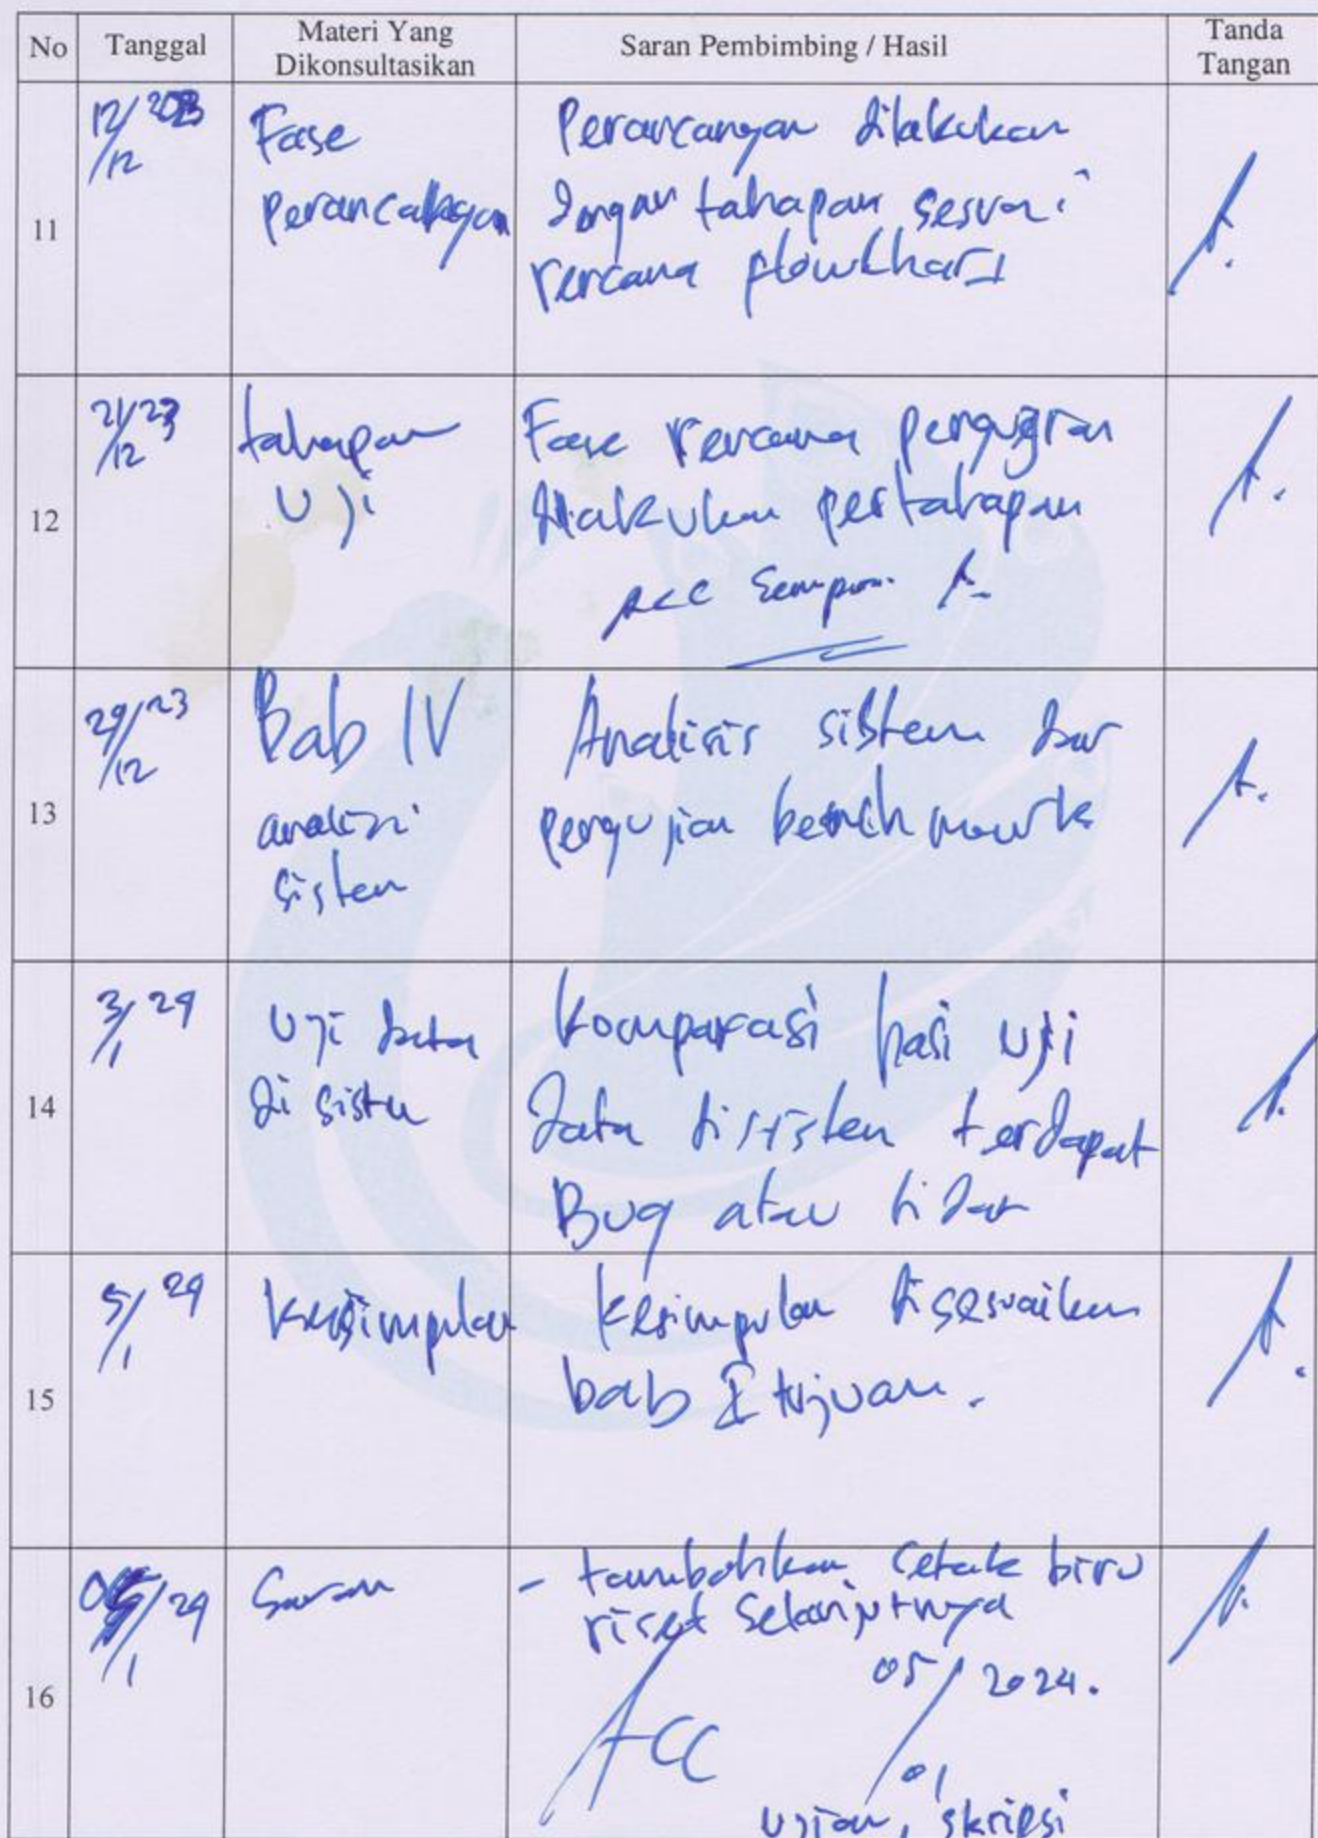 No Tanggal Materi Yang Dikonsultasikan Saran Pembimbing / Hasil Tanda Tangan
11 12/12 2023 Fase Perancangan Perancangan dilakukan
dengan tahapan sesuai
rencana flowchart
12 21/12 23 tahapan Fase rencana pengujian
Uji dilakukan pertahapan
ACC Sempro
13 29/12 23 Bab IV Analisis sistem dan
analisis pengujian benchmark
sistem
14 3/1 24 Uji data Komparasi hasi uji
di sistem data disistem terdapat
Bug atau tidak
15 5/1 24 Kesimpulan Kesimpulan disesuaikan
bab I tujuan.
16 05/1 24 Saran - tambahkan Cetak biru
riset selanjutnya
ACC 05/01 2024.
Ujian, skripsi